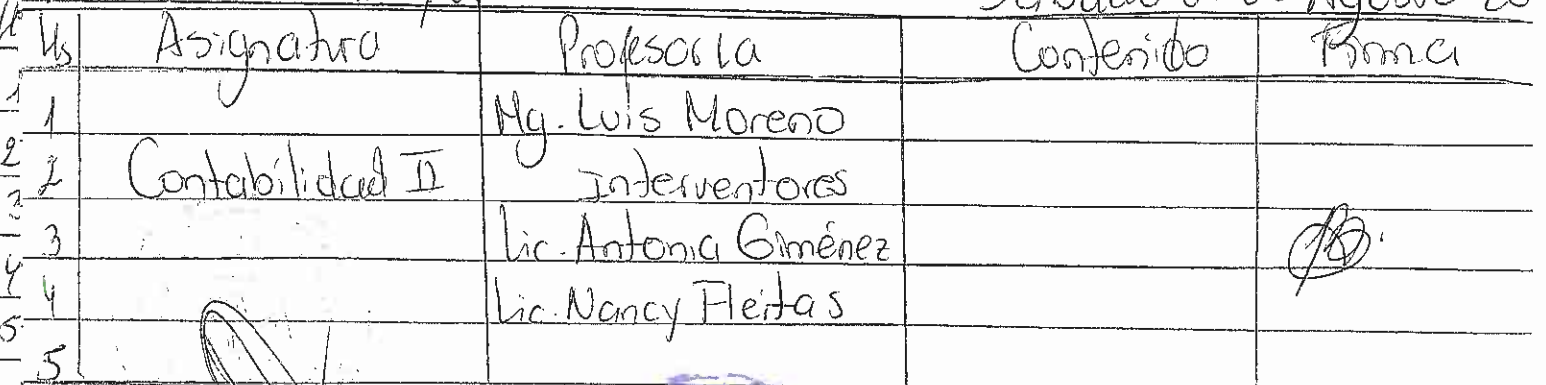 Hs Asignatura Profesor/a Contenido Firma
1 Mg. Luis Moreno
2 Contabilidad II Interventores
3 Lic. Antonia Giménez
4 Lic. Nancy Fleitas
5